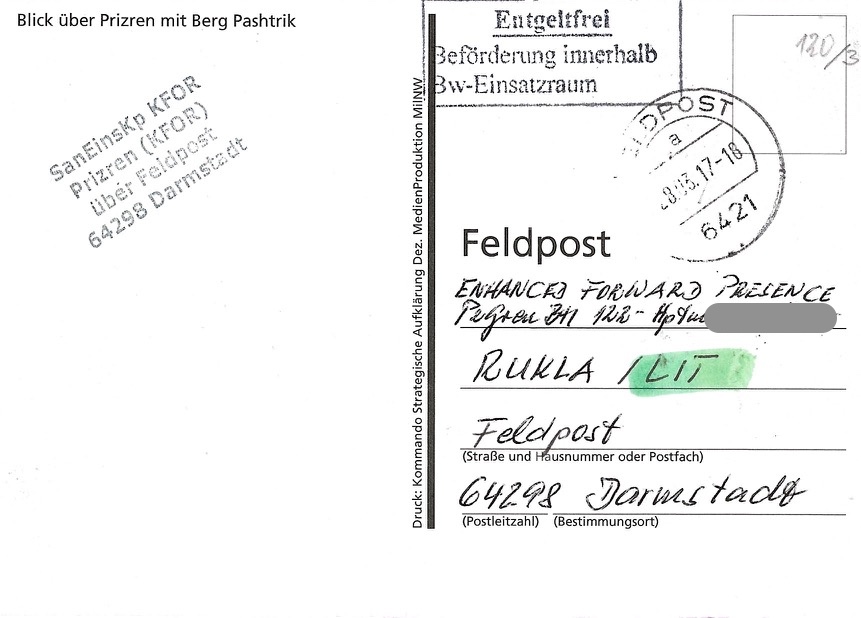 Blick über Prizren mit Berg Pashtrik
SanEinsKp KFOR
Prizren (KFOR)
über Feldpost
64298 Darmstadt
Druck: Kommando Strategische Aufklärung Dez. MedienProduktion MilNW
Entgeltfrei
Beförderung innerhalb
Bw-Einsatzraum
120/3
FELDPOST
a
28.03.17-18
6421
Feldpost
ENHANCED FORWARD PRESENCE
PzGren Btl 122 - Hptm
RUKLA / LIT
Feldpost
(Straße und Hausnummer oder Postfach)
64298 Darmstadt
(Postleitzahl) (Bestimmungsort)